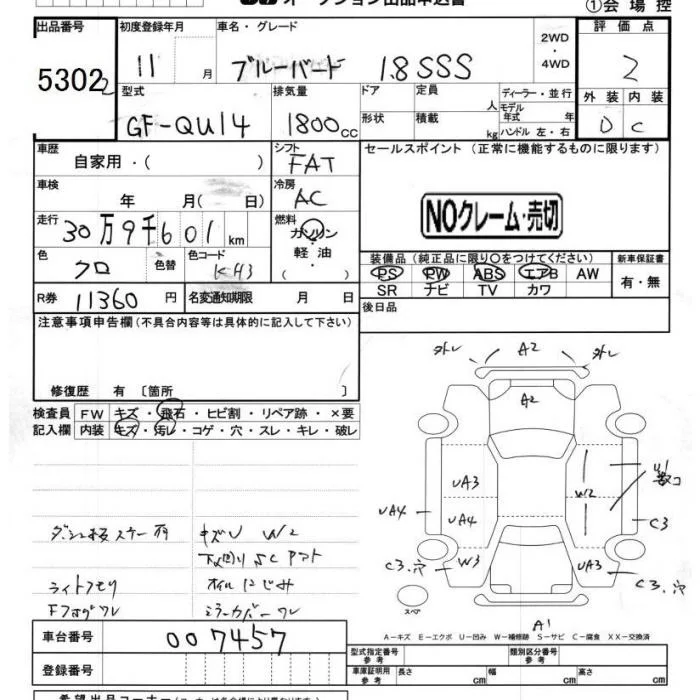 オークション出品申込書
①会場控
出品番号 初度登録年月 車名・グレード 2WD・4WD 評価点
53022 11月 ブルーバード 1.8SSS 2
型式 排気量 ドア 定員 人 ディーラー・並行 外装 内装
GF-QU14 1800cc 形状 積載 kg モデル年式 年 ハンドル 左・右 D C
車歴 シフト セールスポイント(正常に機能するものに限ります)
自家用・( ) FAT
車検 年 月( 日) 冷房 AC
NOクレーム・売切
走行 30万9千601km 燃料 ガソリン・軽油・( )
色 クロ 色替 色コード KH3
装備品(純正品に限り○をつけてください) 新車保証書
PS PW ABS エアB AW 有・無
SR ナビ TV カワ
R券 11360円 名変通知期限 月 日 後日品
注意事項申告欄(不具合内容等は具体的に記入して下さい)
修復歴 有〔箇所 〕
検査員 FW キズ・飛石・ヒビ割・リペア跡・×要
記入欄 内装 キズ・汚レ・コゲ・穴・スレ・キレ・破レ
外レ A2 外レ
A2
UA3 W2 U1
UA4 UA4 C3
C3.穴 W3 UA3 C3.穴
スペア A1
キズU W2
下廻りSC
ライトクモリ オイルにじみ
Fフォグワレ ミラーカバーワレ
A-キズ E-エクボ U-凹み W-補修跡 S-サビ C-腐食 XX-交換済
車台番号 007457
型式指定番号 参考 類別区分番号 参考
登録番号 車庫証明用 参考 長さ cm 幅 cm 高さ cm